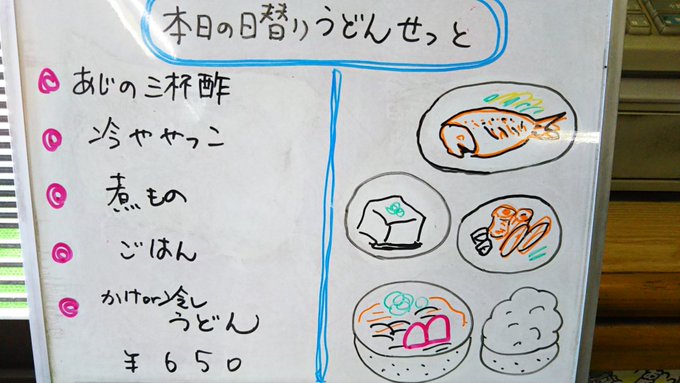 本日の日替りうどんせっと
あじの三杯酢
冷ややっこ
煮もの
ごはん
かけor冷し
うどん
¥650